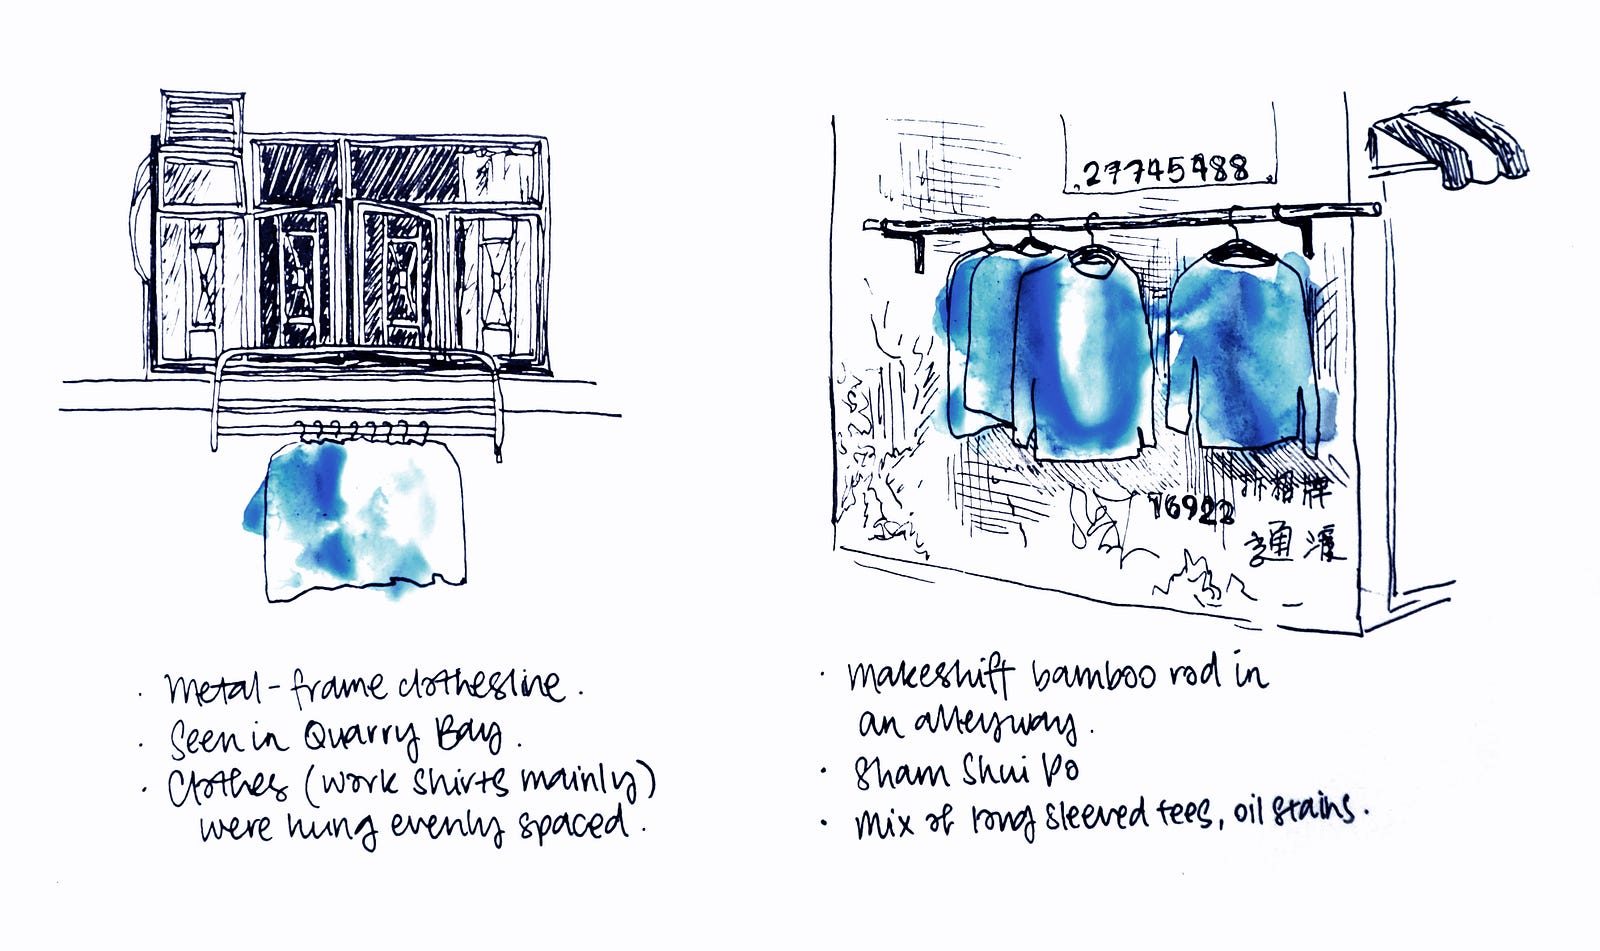 · Metal-frame clothesline.
· Seen in Quarry Bay.
· Clothes (work shirts mainly)
were hung evenly spaced.
27745488
76922
牌
通渠
· Makeshift bamboo rod in
an alleyway.
· Sham Shui Po
· Mix of long sleeved tees, oil stains.